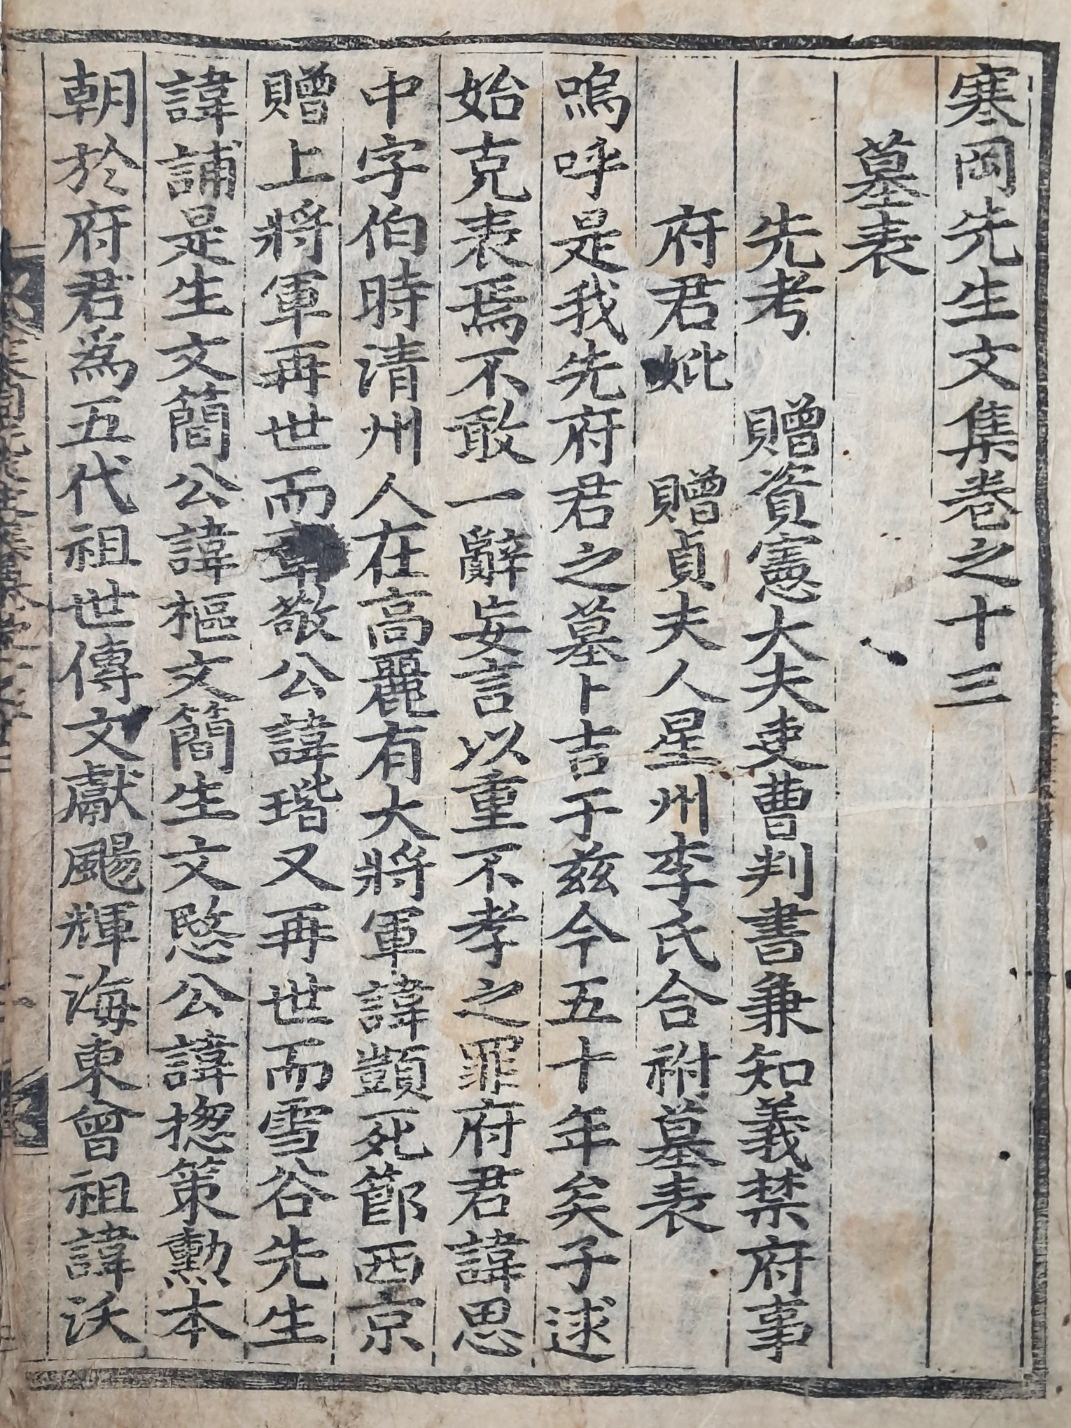 寒岡先生文集卷之十三
墓表
先考 贈資憲大夫吏曹判書兼知義禁府事
府君妣 贈貞夫人星州李氏合祔墓表
嗚呼是我先府君之墓卜吉于茲今五十年矣子逑
始克表焉不敢一辭妄言以重不孝之罪府君諱思
中字伯時清州人在高麗有大將軍諱顗死節西京
贈上將軍再世而章敬公諱瑎又再世而雪谷先生
諱誧是生文簡公諱樞文簡生文愍公諱摠策勳本
朝於府君爲五代祖世傳文獻颺輝海東曾祖諱沃